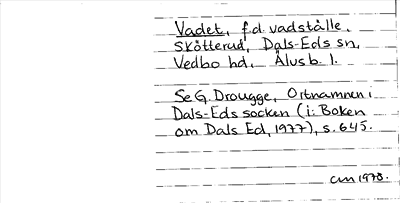 Vadet, f.d. vadställe.
Skötterud, Dals-Eds sn,
Vedbo hd, Älvsb. l.
Se G. Drougge, Ortnamnen i
Dals-Eds socken (i: Boken
om Dals Ed, 1977), s. 645.
1978.